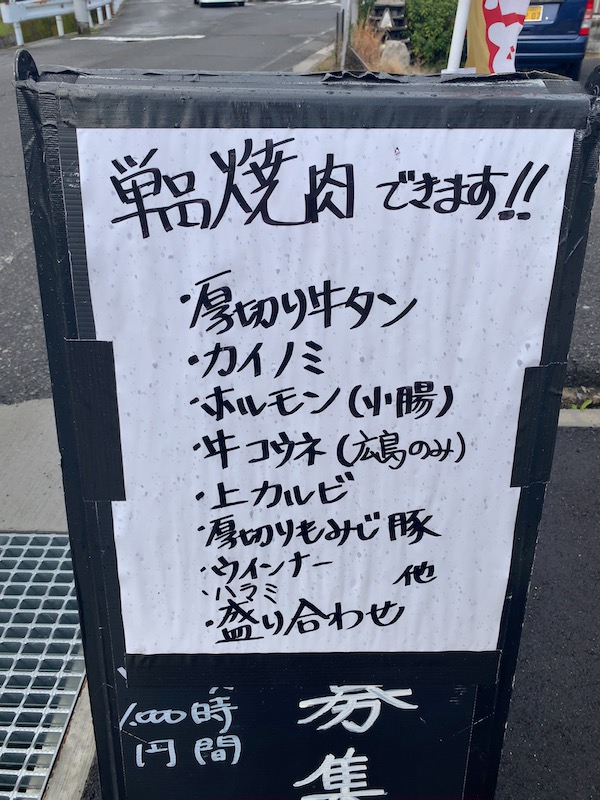 単品焼肉 できます!!
・厚切り牛タン
・カイノミ
・ホルモン(小腸)
・牛コウネ(広島のみ)
・上カルビ
・厚切りもみじ豚
・ウインナー 他
・ハラミ
・盛り合わせ
集
時間
1,000円